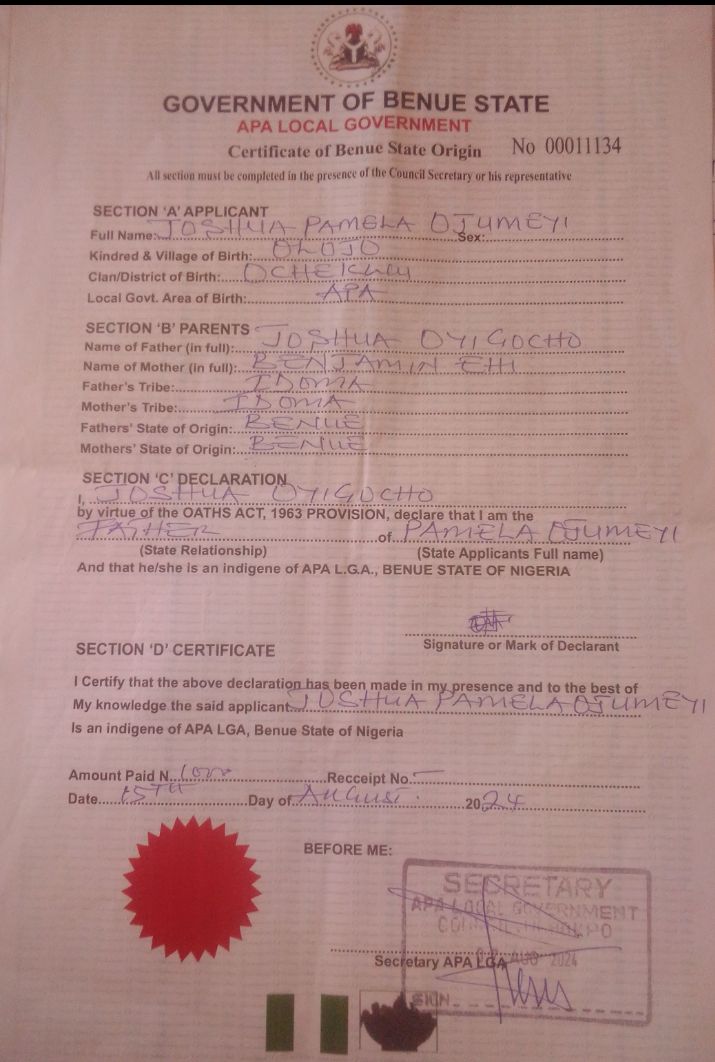 GOVERNMENT OF BENUE STATE
APA LOCAL GOVERNMENT
Certificate of Benue State Origin No 00011134
All section must be completed in the presence of the Council Secretary or his representative
SECTION 'A' APPLICANT
Full Name: JOSHUA PAMELA OJUMEYI Sex:
Kindred & Village of Birth: OLOJO
Clan/District of Birth:
Local Govt. Area of Birth: APA
SECTION 'B' PARENTS
Name of Father (in full): JOSHUA OYIGOCHO
Name of Mother (in full): BENJAMIN EHI
Father's Tribe: IDOMA
Mother's Tribe: IDOMA
Fathers' State of Origin: BENUE
Mothers' State of Origin: BENUE
SECTION 'C' DECLARATION
I, JOSHUA OYIGOCHO
by virtue of the OATHS ACT, 1963 PROVISION, declare that I am the
FATHER of PAMELA OJUMEYI
(State Relationship) (State Applicants Full name)
And that he/she is an indigene of APA L.G.A., BENUE STATE OF NIGERIA
Signature or Mark of Declarant
SECTION 'D' CERTIFICATE
I Certify that the above declaration has been made in my presence and to the best of
My knowledge the said applicant JOSHUA PAMELA OJUMEYI
Is an indigene of APA LGA, Benue State of Nigeria
Amount Paid N. 1000 Recceipt No. —
Date 15TH Day of AUGUST. 2024
BEFORE ME:
SECRETARY
APA LOCAL GOVERNMENT
AUG 2024
Secretary APA LGA
SIGN